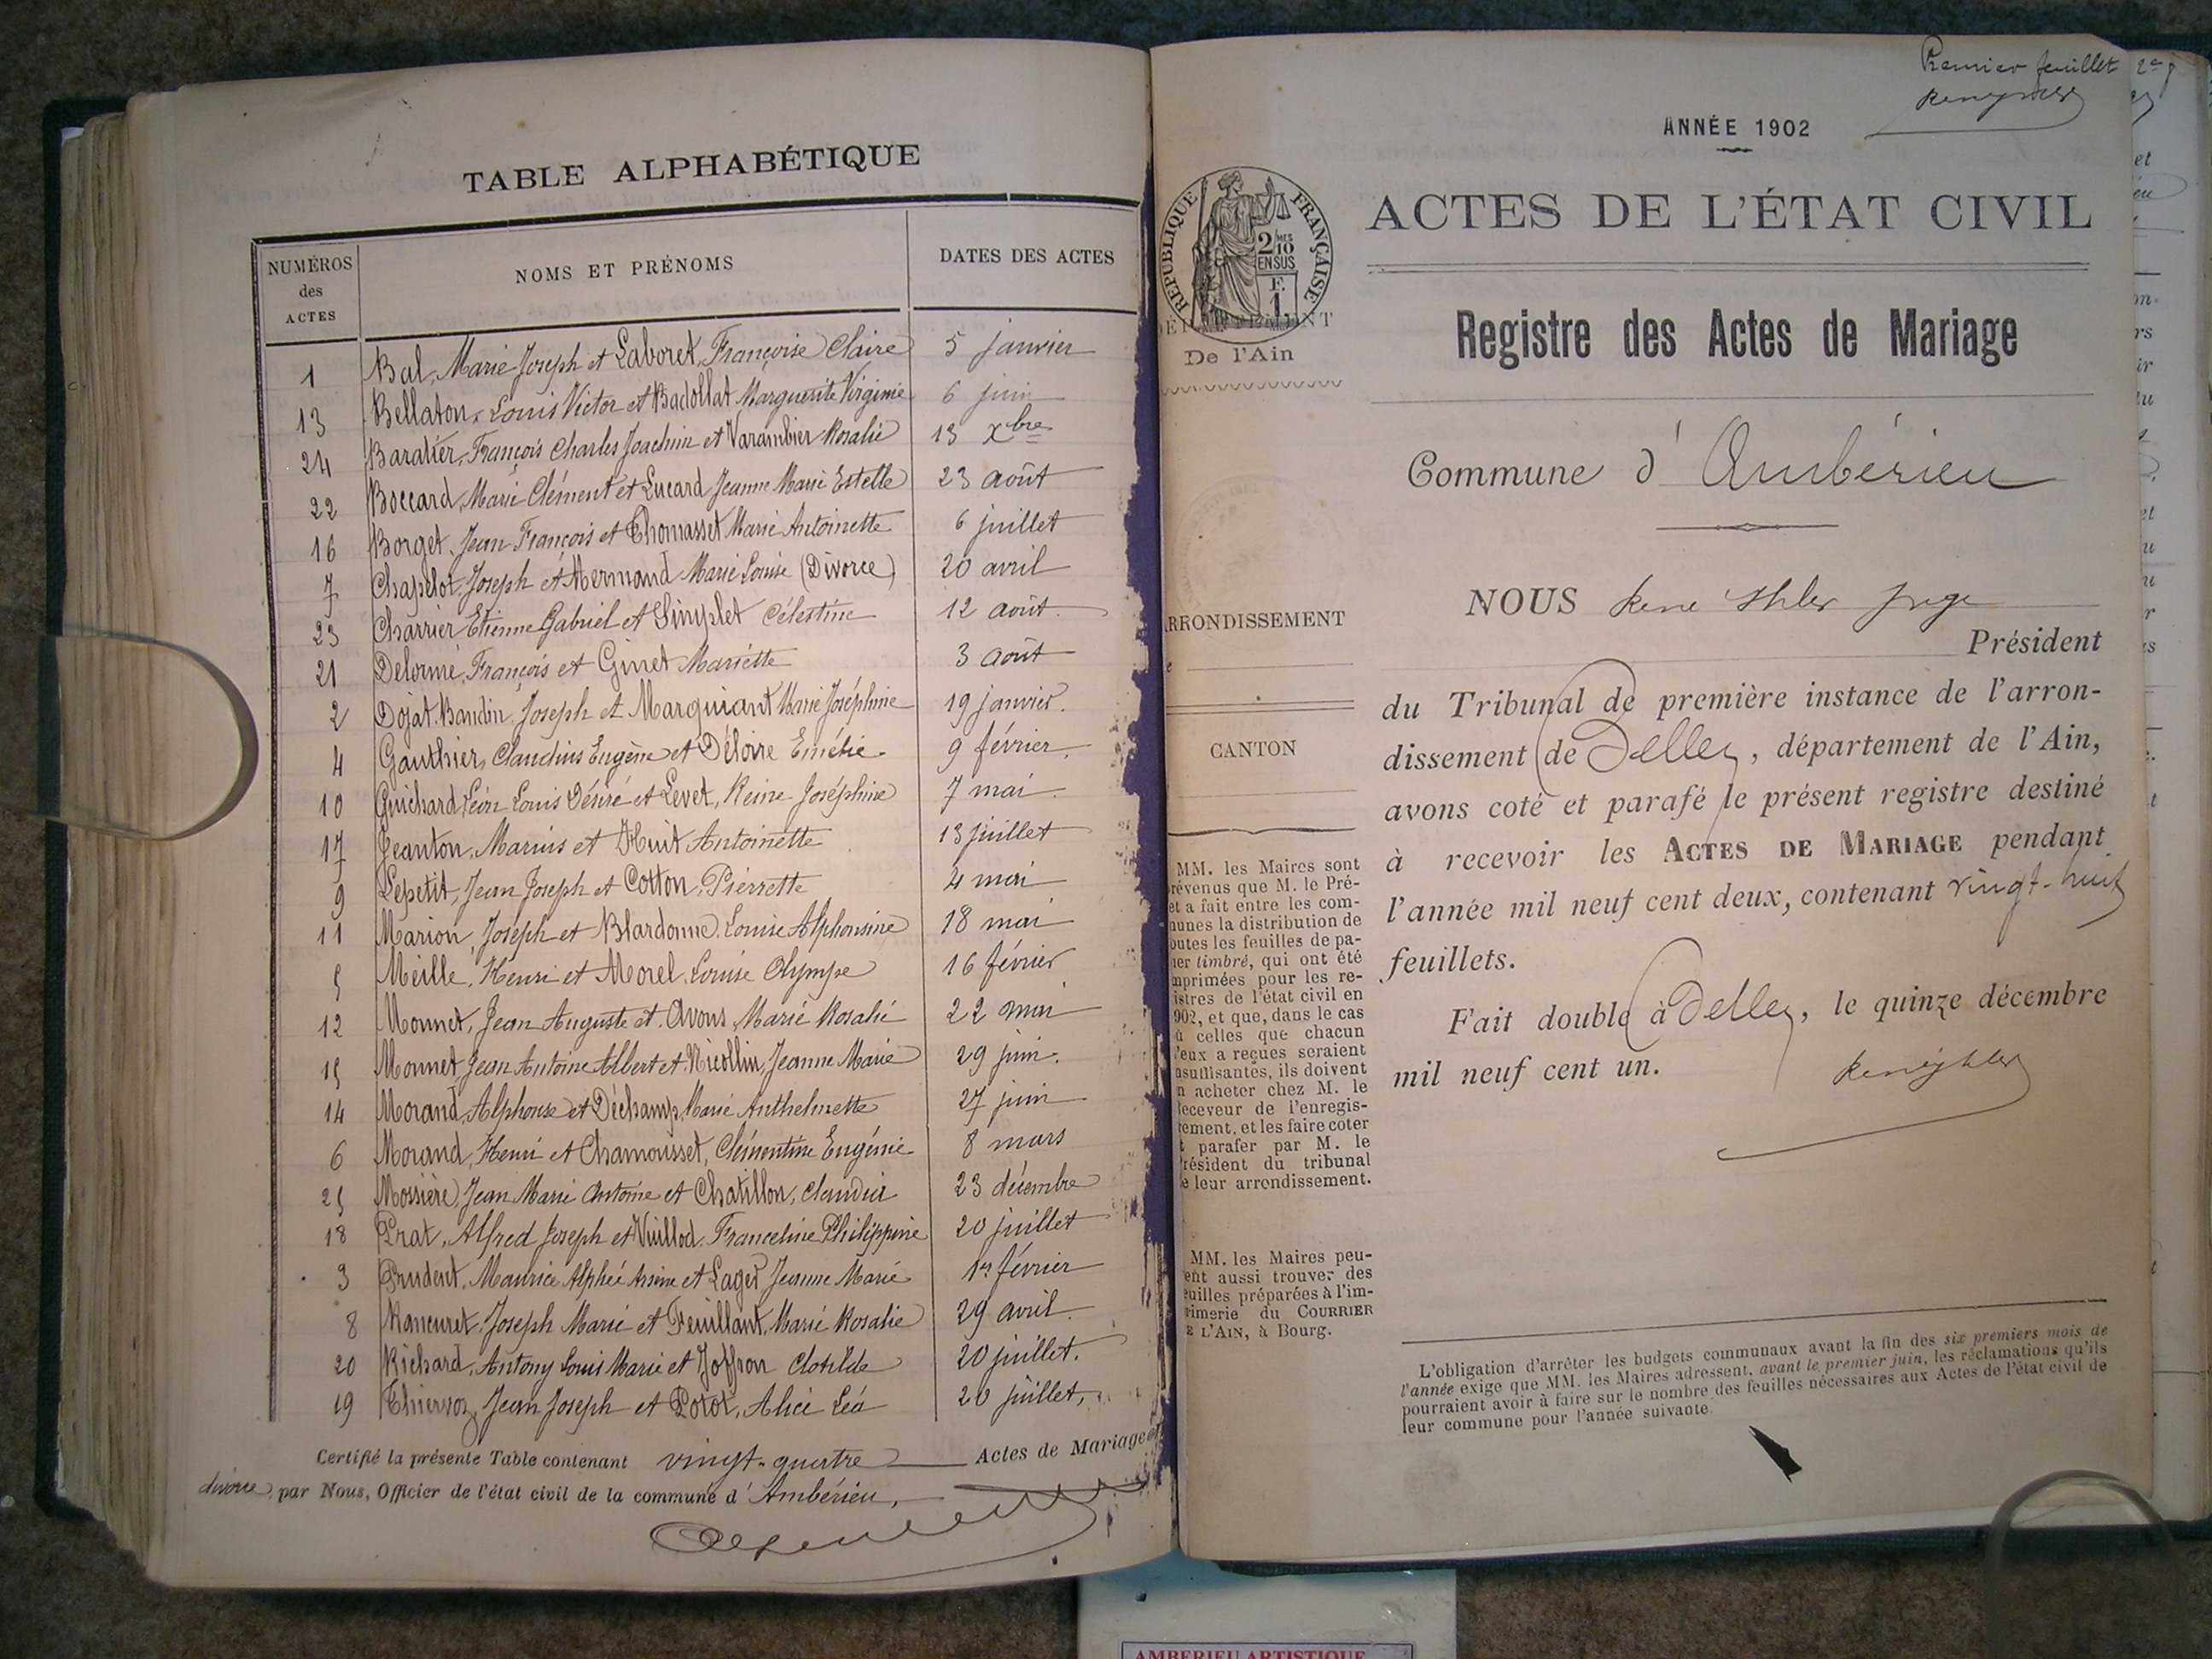 TABLE ALPHABÉTIQUE
NUMÉROS des ACTES NOMS ET PRÉNOMS DATES DES ACTES
1 Bal, Marie Joseph et Laboret, Françoise Claire 5 janvier
13 Bellaton, Louis Victor et Badollat Marguerite Virginie 6 juin
24 Baratier, François Charles Joachim et Varambier Rosalie 13 Xbre
22 Boccard, Marie Clément et Lucard Jeanne Marie Estelle 23 août
16 Borget, Jean François et Thomasset Marie Antoinette 6 juillet
7 Chapelot, Joseph et Mermand Marie Louise (Divorce) 20 avril
23 Charrier Etienne Gabriel et Simplet Célestine 12 août
21 Delorme, François et Ginet Mariette 3 août
2 Dojat-Baudin, Joseph et Marguiant Marie Joséphine 19 janvier.
4 Gauthier, Claudius Eugène et Déloire Emélie 9 février
10 Guichard Léon Louis Désiré et Levet, Reine Joséphine 7 mai
17 Jeanton, Marius et Huit Antoinette 13 juillet
9 Lepetit, Jean Joseph et Cotton, Pierrette 4 mai
11 Marion, Joseph et Blardonne, Louise Alphonsine 18 mai
5 Meille, Henri et Morel, Louise Olympe 16 février
12 Monnet, Jean Auguste et Avons, Marie Rosalie 22 mai
15 Monnet, Jean Antoine Albert et Nicollin, Jeanne Marie 29 juin.
14 Morand, Alphonse et Déchamp, Marie Anthelmette 27 juin
6 Morand, Henri et Chamousset, Clémentine Eugénie 8 mars
25 Mossière, Jean Marie Antoine et Chatillon, Claudia 23 décembre
18 Prat, Alfred Joseph et Vuillod, Franceline Philippine 20 juillet
3 Prudent, Maurice Alphée Arsène et Laget Jeanne Marie 1er février
8 Rancuret, Joseph Marie et Feuillant, Marie Rosalie 29 avril
20 Richard, Antony Louis Marie et Joffron Clotilde 20 juillet.
19 Thiervoz, Jean Joseph et Potot, Alice Léa 20 juillet,
Certifié la présente Table contenant vingt-quatre Actes de Mariage et
divorce, par Nous, Officier de l'état civil de la commune d'Ambérieu,
Premier feuillet
ANNÉE 1902
ACTES DE L'ÉTAT CIVIL
RÉPUBLIQUE FRANÇAISE
2/10 MES
EN SUS
F.
1
De l'Ain
Registre des Actes de Mariage
Commune d'Ambérieu
ARRONDISSEMENT
CANTON
NOUS Juge
Président
du Tribunal de première instance de l'arron-
dissement de Belley, département de l'Ain,
avons coté et parafé le présent registre destiné
à recevoir les ACTES DE MARIAGE pendant
l'année mil neuf cent deux, contenant vingt-huit
feuillets.
Fait double à Belley, le quinze décembre
mil neuf cent un.
MM. les Maires sont
révenus que M. le Pré-
et a fait entre les com-
munes la distribution de
outes les feuilles de pa-
ier timbré, qui ont été
mprimées pour les re-
istres de l'état civil en
902, et que, dans le cas
ù celles que chacun
'eux a reçues seraient
nsuffisantes, ils doivent
n acheter chez M. le
Receveur de l'enregis-
rement, et les faire coter
t parafer par M. le
résident du tribunal
e leur arrondissement.
MM. les Maires peu-
ent aussi trouver des
euilles préparées à l'im-
rimerie du COURRIER
E L'AIN, à Bourg.
L'obligation d'arrêter les budgets communaux avant la fin des six premiers mois de
l'année exige que MM. les Maires adressent, avant le premier juin, les réclamations qu'ils
pourraient avoir à faire sur le nombre des feuilles nécessaires aux Actes de l'état civil de
leur commune pour l'année suivante.
AMBERIEU ARTISTIQUE